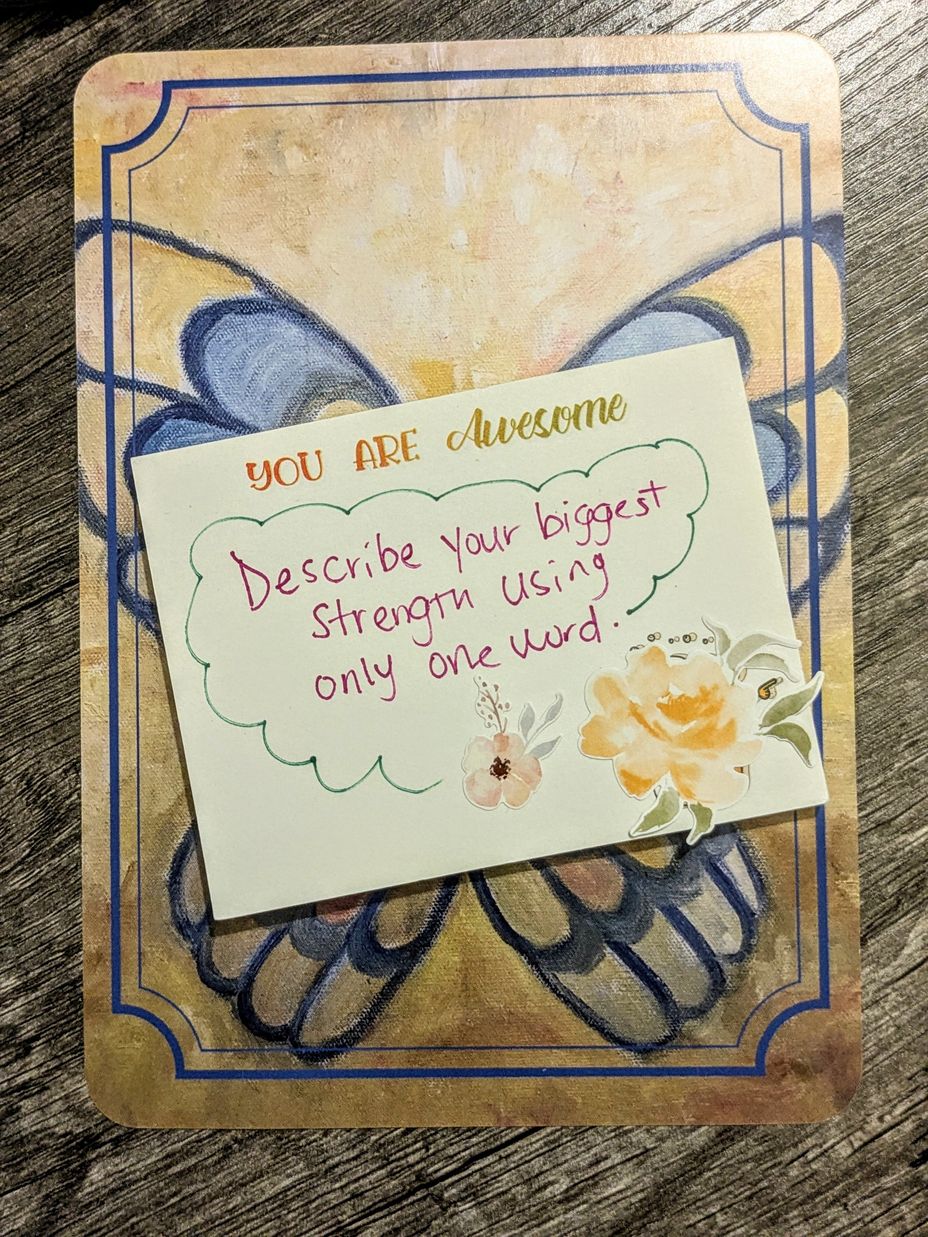 YOU ARE Awesome
Describe your biggest
strength using
only one word.